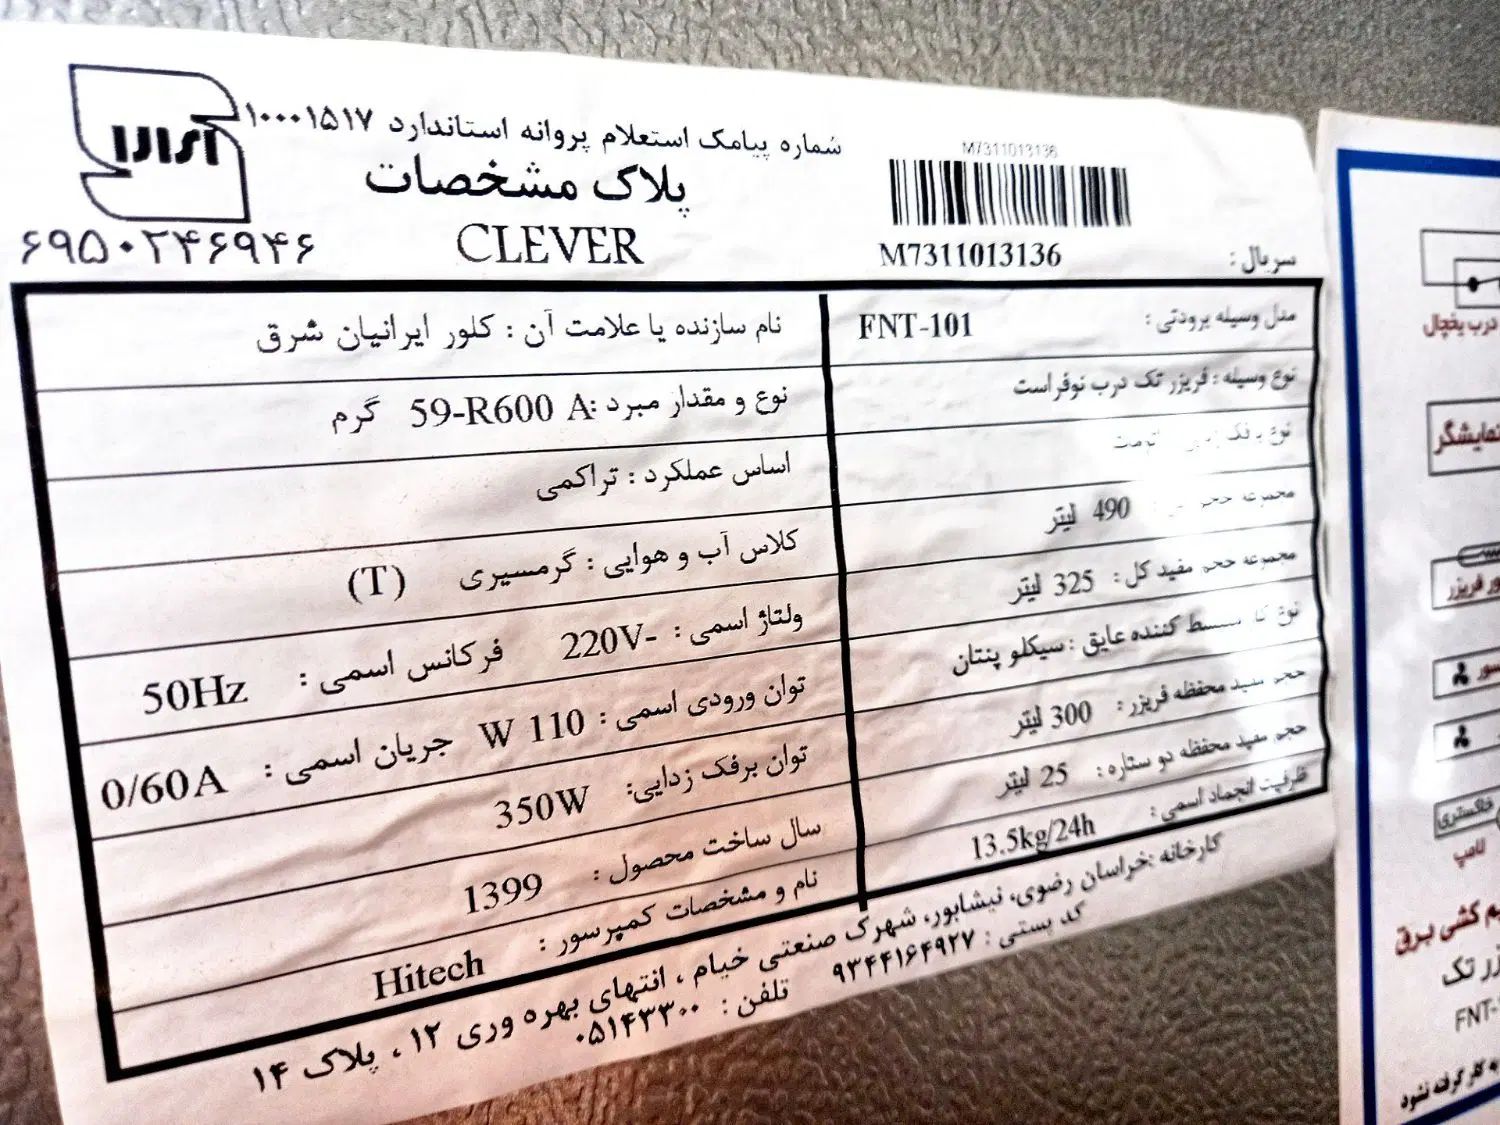 شماره پیامک استعلام پروانه استاندارد ۱۰۰۰۱۵۱۷
پلاک مشخصات
CLEVER
۶۹۵۰۲۴۶۹۴۶
M7311013136
سریال : M7311013136
مدل وسیله برودتی : FNT-101
نوع وسیله : فریزر تک درب نوفراست
نوع
490 لیتر
مجموعه حجم مفید کل : 325 لیتر
کننده عایق : سیکلو پنتان
حجم مفید محفظه فریزر : 300 لیتر
حجم مفید محفظه دو ستاره : 25 لیتر
ظرفیت انجماد اسمی : 13.5kg/24h
نام سازنده یا علامت آن : کلور ایرانیان شرق
نوع و مقدار مبرد :59-R600 A گرم
اساس عملکرد : تراکمی
کلاس آب و هوایی : گرمسیری (T)
ولتاژ اسمی : 220V- فرکانس اسمی : 50Hz
توان ورودی اسمی : 110 W جریان اسمی : 0/60A
توان برفک زدایی: 350W
سال ساخت محصول : 1399
نام و مشخصات کمپرسور : Hitech
کارخانه :خراسان رضوی، نیشابور، شهرک صنعتی خیام ، انتهای بهره وری ۱۲ ، پلاک ۱۴
کد پستی : ۹۳۴۴۱۶۴۹۲۷ تلفن : ۰۵۱۴۳۳۰۰
درب یخچال
نمایشگر
فریزر
خاکستری
لامپ
کشی برق
تک
FNT-
به کار گرفته نشود